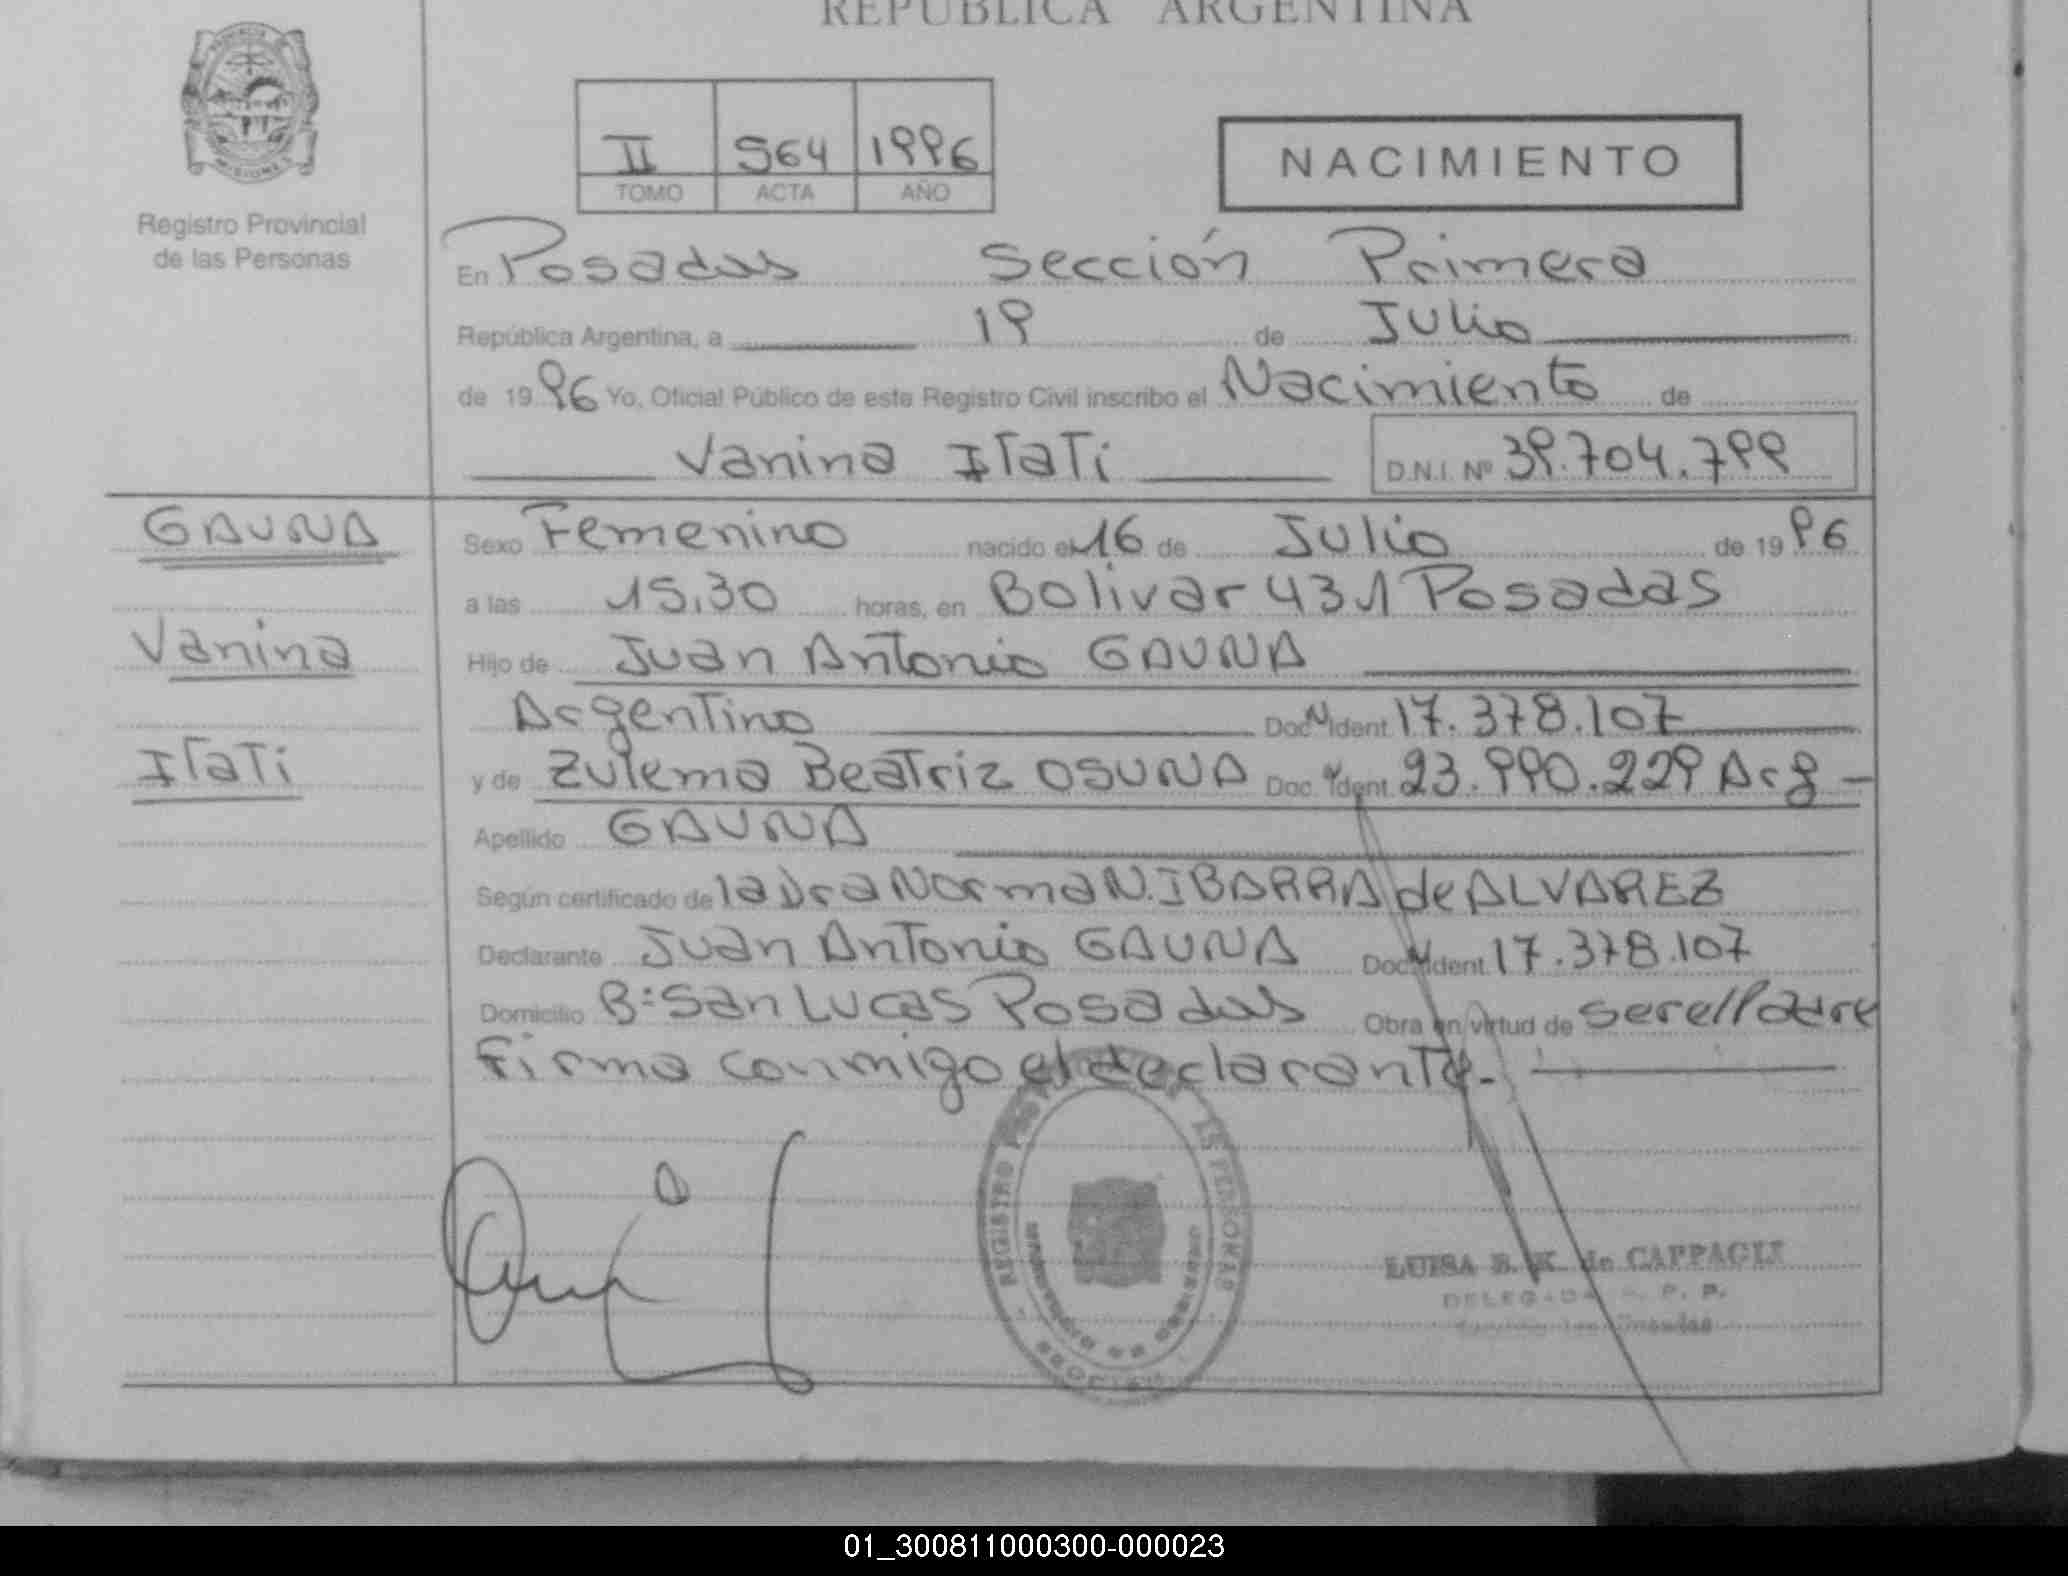 REPUBLICA ARGENTINA
PROVINCIA DE
MISIONES
Registro Provincial
de las Personas
II 564 1996
TOMO ACTA AÑO
NACIMIENTO
En Posadas Sección Primera
República Argentina, a 19 de Julio
de 1996 Yo, Oficial Público de este Registro Civil inscribo el Nacimiento de
Vanina Itatí D.N.I. Nº 39.704.799
GAUNA
Vanina
Itatí
Sexo Femenino nacido el 16 de Julio de 1996
a las 15,30 horas, en Bolivar 431 Posadas
Hijo de Juan Antonio GAUNA
Argentino Doc N Ident 17.378.107
y de Zulema Beatriz OSUNA Doc. Ident. 23.990.229 Arg -
Apellido GAUNA
Según certificado de la Dra Norma N. IBARRA de ALVAREZ
Declarante Juan Antonio GAUNA Doc Ident 17.378.107
Domicilio Bº San Lucas Posadas Obra en virtud de ser el Padre
Firma conmigo el declarante.-
REGISTRO PERSONAS
LUISA B. K. de CAPPAGLI
DELEGADA R. P. P.
Posadas
01_300811000300-000023